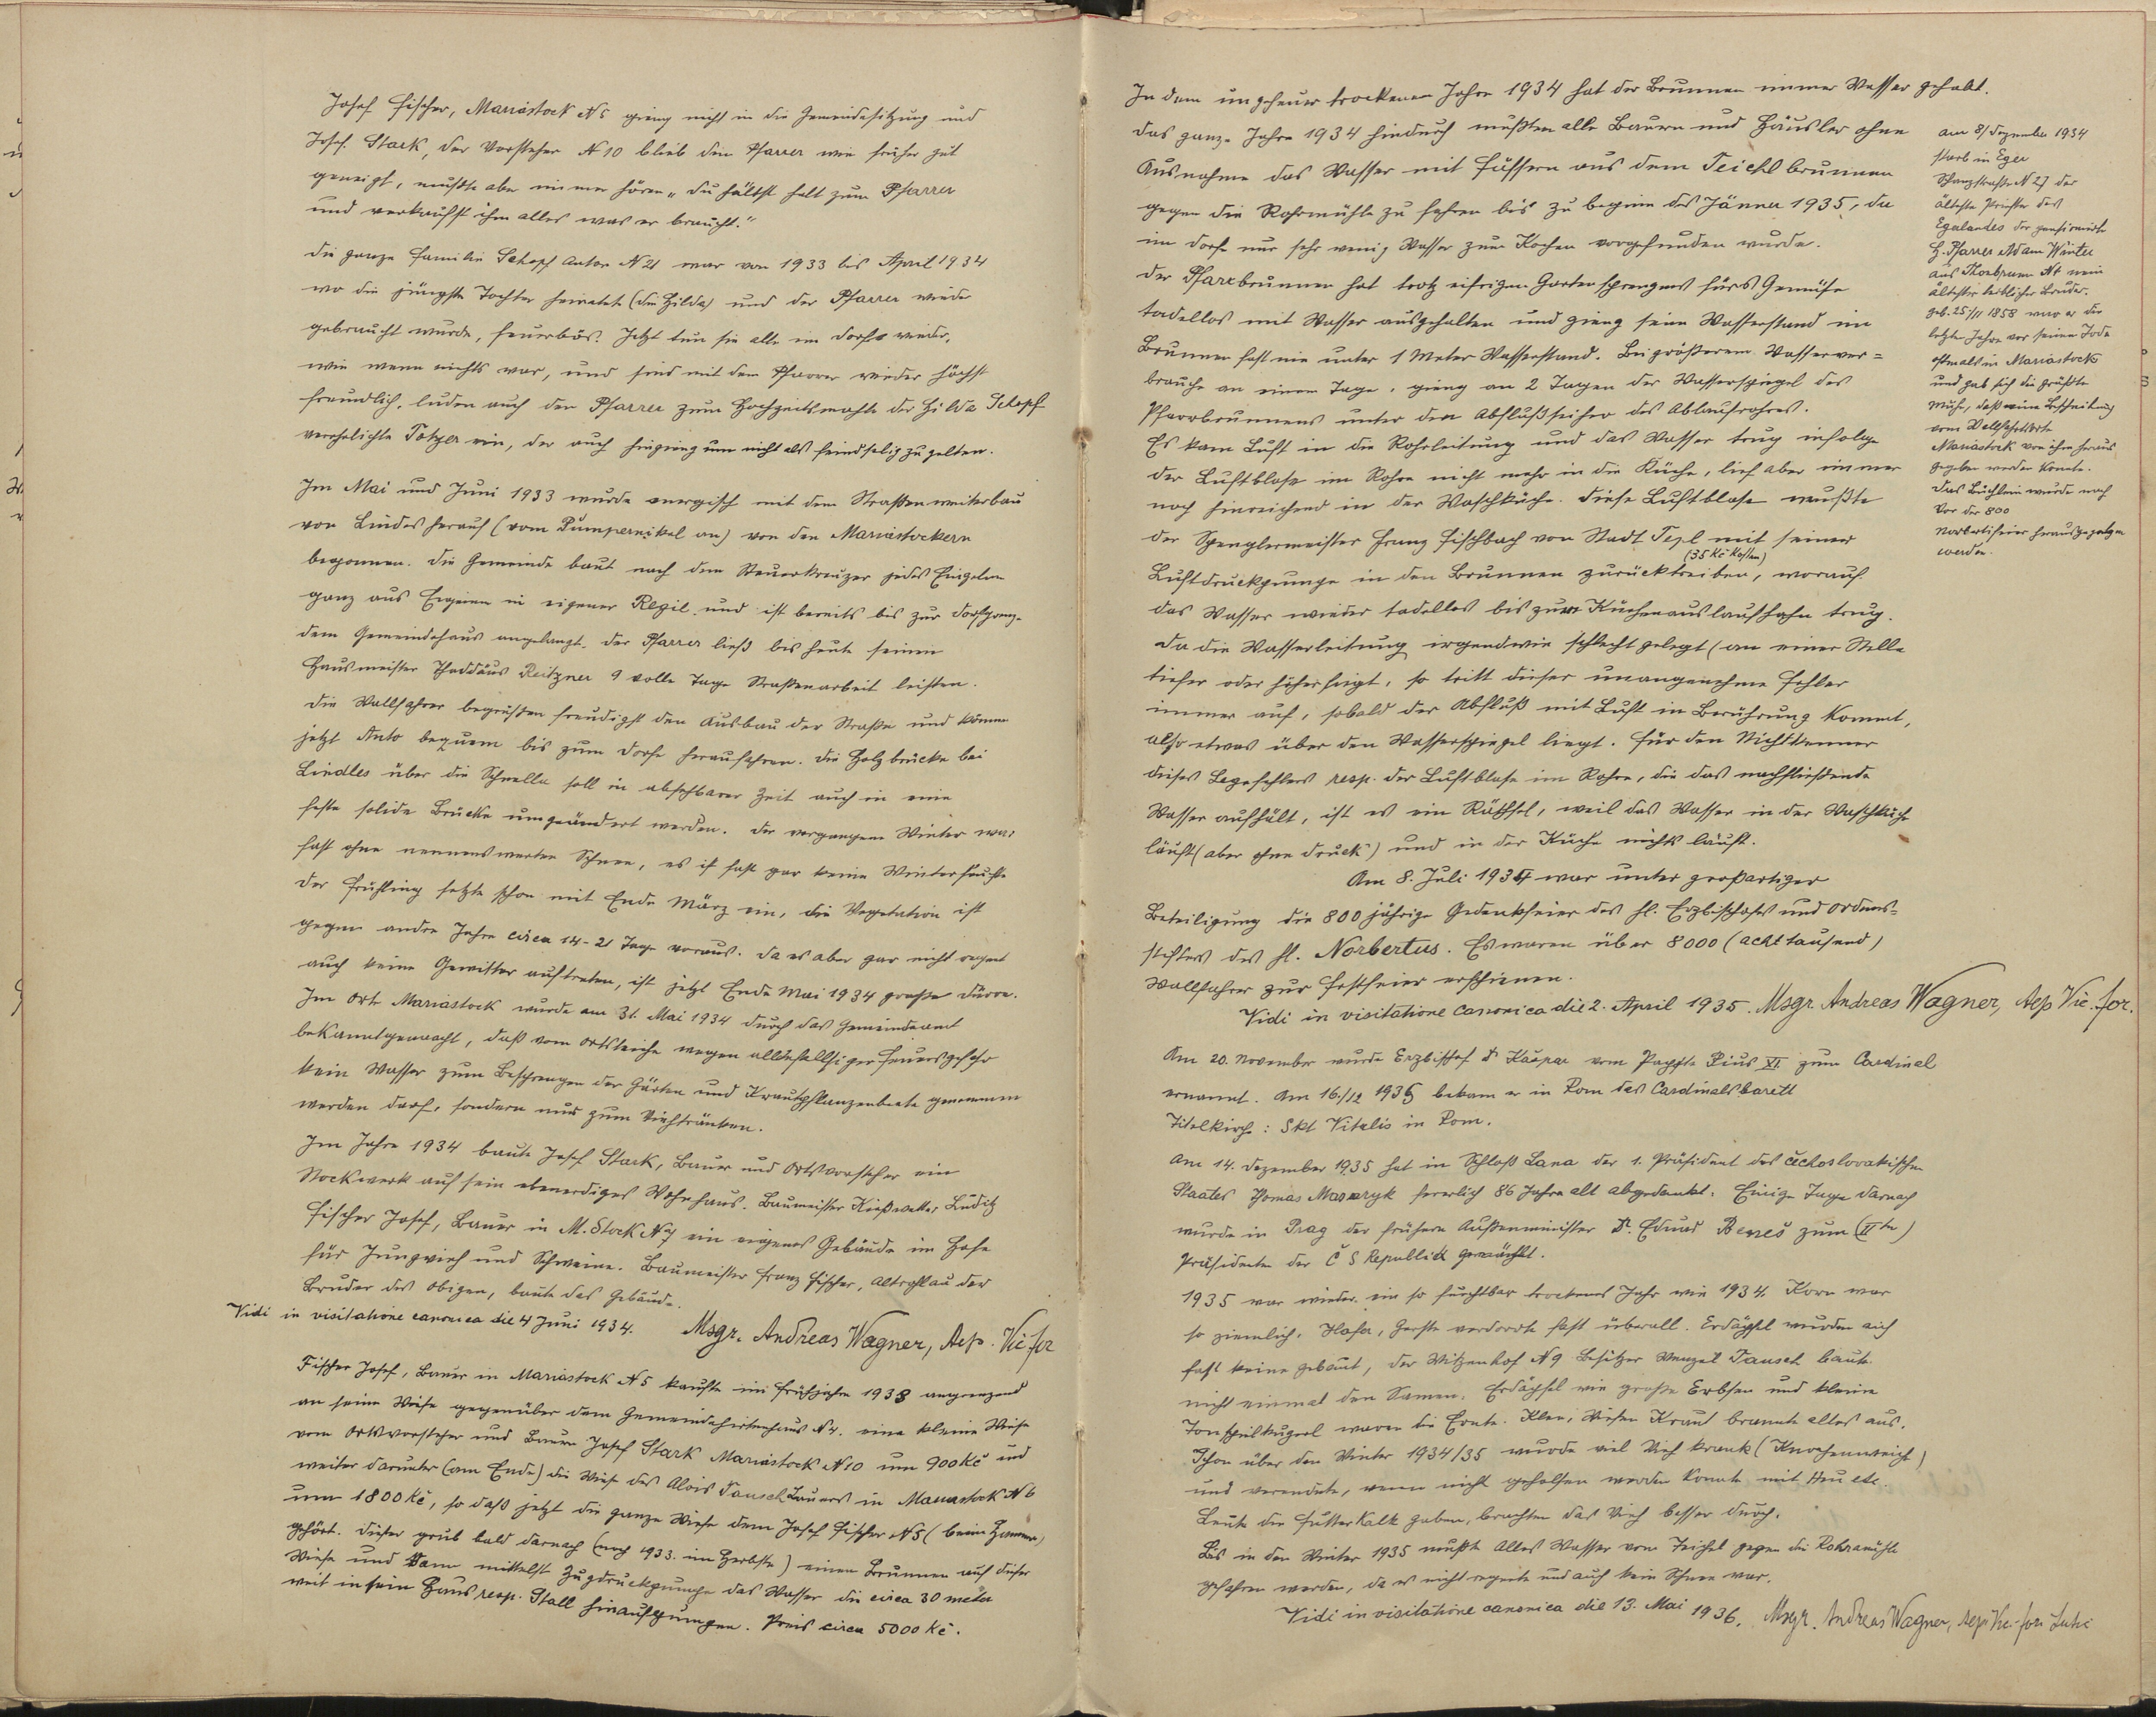 Josef Fischer, Mariastock N 5 gieng nicht in die Gemeindesitzung und
Josef Stark, der Vorsteher N 10 blieb dem Pfarrer wie früher gut
geneigt, mußte aber immer hören „du hältst halt zum Pfarrer
und verkaufst ihm alles was er braucht."
Die ganze Familie Schopf Anton N 21 war von 1933 bis April 1934
wo die jüngste Tochter heiratete (die Hilda) und der Pfarrer wieder
gebraucht wurde, feuerbös. Jetzt tun sie alle im Dorfe wieder,
wie wenn nichts war, und sind mit dem Pfarrer wieder höchst
freundlich, luden auch den Pfarrer zum Hochzeitsmahle der Hilda Schopf
verehelichte Totzer ein, der auch hingieng um nicht als feindselig zu gelten.
Im Mai und Juni 1933 wurde energisch mit dem Straßenweiterbau
von Lindles herauf (vom Pumpernikel an) von den Mariastockern
begonnen. Die Gemeinde baut nach dem Steuerkreuzer jedes Einzelnen
ganz aus Eigenem in eigener Regie und ist bereits bis zur Dorfgrenze
dem Gemeindehaus angelangt. Der Pfarrer ließ bis heute seinen
Hausmeister Thaddäus Reitzner 9 volle Tage Straßenarbeit leisten.
Die Wallfahrer begrüßten freudigst den Ausbau der Straße und können
jetzt Auto bequem bis zum Dorfe herauffahren. Die Holzbrücke bei
Lindles über die Schnella soll in absehbarer Zeit auch in eine
feste solide Brücke umgeändert werden. Der vergangene Winter war
fast ohne nennenswerten Schnee, es ist fast gar keine Winterfeuchte
der Frühling setzte schon mit Ende März ein, die Vegetation ist
gegen andre Jahre circa 14-21 Tage voraus. Da es aber gar nicht regnet
auch keine Gewitter auftreten, ist jetzt Ende Mai 1934 große Dürre.
Im Orte Mariastock wurde am 31. Mai 1934 durch das Gemeindeamt
bekanntgemacht, daß vom Ortsteiche wegen allfälliger Feuersgefahr
kein Wasser zum Besprengen der Gärten und Krautpflanzenbeete genommen
werden darf, sondern nur zum Viehtränken.
Im Jahre 1934 baute Josef Stark, Bauer und Ortsvorsteher ein
Stockwerk auf sein ebenerdiges Wohnhaus. Baumeister Kießwetter Luditz
Fischer Josef, Bauer in M. Stock N 5 ein eigenes Gebäude im Hofe
für Jungvieh und Schweine. Baumeister Franz Fischer, Altrohlau der
Bruder des Obigen, baute das Gebäude.
Vidi in visitatione canonica die 4 Juni 1934. Msgr. Andreas Wagner, Aep. Vic. for
Fischer Josef, Bauer in Mariastock N 5 kaufte im Frühjahre 1933 angrenzend
an seine Wiese gegenüber dem Gemeindehirtenhaus N 4. eine kleine Wiese
vom Ortsvorsteher und Bauer Josef Stark Mariastock N 10 um 900 Kč und
weiter darunter (am Ende) die Wiese des Alois Tausch Bauers in Mariastock N 6
um 1800 Kč, so daß jetzt die ganze Wiese dem Josef Fischer N 5 (beim Hammer)
gehört. Dieser grub bald darnach (noch 1933. im Herbste) einen Brunnen auf dieser
Wiese und kann mittelst Zugdruckpumpe das Wasser die circa 30 meter
weit in sein Haus resp. Stall hinaufpumpen. Preis circa 5000 Kč.
In dem ungeheuer trockenen Jahre 1934 hat der Brunnen immer Wasser gehabt.
Das ganze Jahre 1934 hindurch mußten alle Bauern und Häusler ohne
Ausnahme das Wasser mit Fässern aus dem Teichlbrunnen
gegen die Rohrmühle zu fahren bis zu beginn des Jänner 1935, da
im Dorfe nur sehr wenig Wasser zum Kochen vorgefunden wurde.
Der Pfarrbrunnen hat trotz eifrigen Gartensprengens fürs Gemüse
tadellos mit Wasser ausgehalten und gieng sein Wasserstand im
Brunnen fast nie unter 1 Meter Wasserstand. Bei größerem Wasserver=
brauche an einem Tage, gieng an 2 Tagen der Wasserspiegel des
Pfarrbrunnens unter den Abflußseiher des Ablaufrohres.
Es kam Luft in die Rohrleitung und das Wasser trug infolge
der Luftblase im Rohre nicht mehr in die Küche, lief aber immer
noch hinreichend in der Waschküche. Diese Luftblase mußte
der Spenglermeister Franz Fischbach von Stadt Tepl mit seiner
(35 Kč Kosten)
Luftdruckpumpe in den Brunnen zurücktreiben, worauf
das Wasser wieder tadellos bis zum Küchenauslaufhahn trug.
Da die Wasserleitung irgendwie schlecht gelegt (an einer Stelle
tiefer oder höher liegt, so tritt dieser unangenehme Fehler
immer auf, sobald der Abfluß mit Luft in Berührung kommt,
also etwas über den Wasserspiegel liegt. Für den Nichtkenner
dieses Legefehlers resp. der Luftblase im Rohre, die das nachfließende
Wasser aufhält, ist es ein Räthsel, weil das Wasser in der Waschküche
läuft (aber ohne Druck) und in der Küche nichts läuft.
Am 8. Juli 1934 war unter großartiger
Beteiligung die 800 jährige Gedenkfeier des hl. Erzbischofs und Ordens=
stifters des hl. Norbertus. Es waren über 8000 (achttausend)
Wallfahrer zur Festfeier erschienen.
Vidi in visitatione canonica die 2. April 1935. Msgr. Andreas Wagner, Aep Vic. for.
Am 20. November wurde Erzbischof Dr Kašpar vom Papste Pius XI. zum Cardinal
ernannt. Am 16./12 1935 bekam er in Rom das Cardinalsbarett
Titelkirche: Skt Vitalis in Rom.
Am 14. Dezember 1935 hat in Schloß Lana der 1. Präsident des čechoslovakischen
Staates Thomas Masaryk feierlich 86 Jahre alt abgedankt. Einige Tage darnach
wurde in Prag der frühere Außenminister Dr. Eduard Beneš zum (II ten)
Präsidenten der Č S Republik gewählt.
1935 war wieder ein so furchtbar trockenes Jahr wie 1934. Korn war
so ziemlich, Hafer, Gerste verdorrte fast überall. Erdäpfel wurden auch
fast keine gebaut, der Witzenhof N 9 Besitzer Wenzel Tausch baute
nicht einmal den Samen. Erdäpfel wie große Erbsen und kleine
Tonspielkugerl waren die Ernte. Klee, Wiesen Kraut brannte alles aus.
Schon über den Winter 1934/35 wurde viel Vieh krank (Knochenweich)
und verendete, wenn nicht geholfen werden konnte mit Heu etc.
Leute die Futterkalk gaben, brachten das Vieh besser durch.
Bis in den Winter 1935 mußte alles Wasser vom Teichel gegen die Rohramühle
gefahren werden, da es nicht regnete und auch kein Schnee war.
Vidi in visitatione canonica die 13. Mai 1936. Msgr. Andreas Wagner, Aep. Vic. for.
Am 8/Dezember 1934
starb in Eger
Schanzstraße N 27 der
älteste Priester des
Egerlandes der pensionierte
H. Pfarrer Adam Winter
mein
ältester leiblicher Bruder.
geb. 25./11 1858 war er die
letzten Jahre vor seinem Tode
oftmals in Mariastock
und gab sich die größte
Mühe, daß eine Beschreibung
vom Wallfahrtsorte
Mariastock von ihm heraus
gegeben werden konnte.
Das Büchlein wurde noch
vor der 800
Norbertifeier herausgegeben
werden.